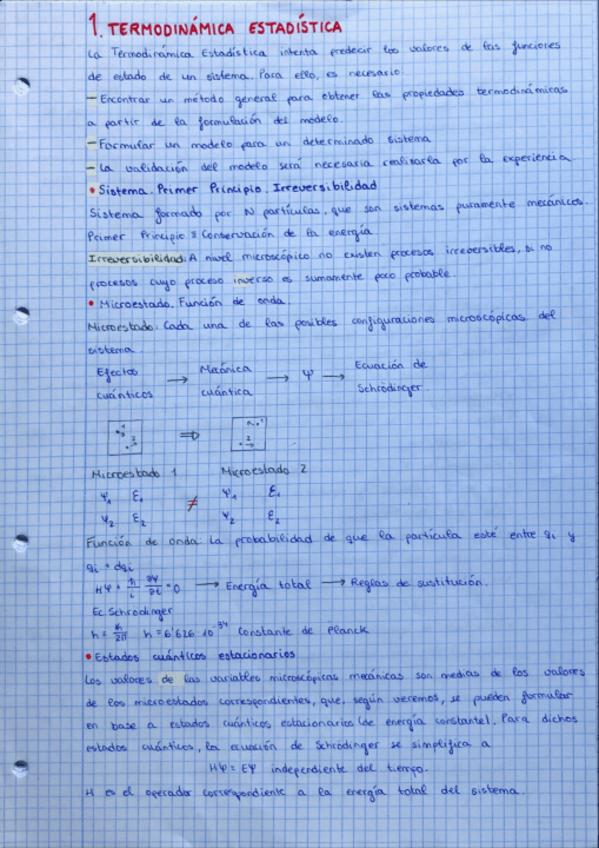 1. TERMODINÁMICA ESTADÍSTICA
La Termodinámica Estadística intenta predecir los valores de las funciones
de estado de un sistema. Para ello, es necesario.
- Encontrar un método general para obtener las propiedades termodinámicas
a partir de la formulación del modelo.
- Formular un modelo para un determinado sistema
- La validación del modelo será necesaria realizarla por la experiencia
• Sistema. Primer Principio. Irreversibilidad
Sistema formado por N partículas, que son sistemas puramente mecánicos.
Primer Principio ≡ Conservación de la energía
Irreversibilidad: A nivel microscópico no existen procesos irreversibles, si no
procesos cuyo proceso inverso es sumamente poco probable.
• Microestado. Función de onda
Microestado: Cada una de las posibles configuraciones microscópicas del
sistema.
Efectos cuánticos → Mecánica cuántica → Ψ → Ecuación de Schrödinger.
⇒
Microestado 1 Microestado 2
Ψ₁ E₁ ≠ Ψ₁ E₁
Ψ₂ E₂ Ψ₂ E₂
Función de onda: La probabilidad de que la partícula esté entre qi y
qi + dqi
HΨ + ħ/i ∂Ψ/∂t = 0 → Energía total → Reglas de sustitución.
Ec. Schrodinger
ħ = h/2π h = 6'626·10⁻³⁴ Constante de Planck
• Estados cuánticos estacionarios
Los valores de las variables microscópicas mecánicas son medias de los valores
de los microestados correspondientes, que, según veremos, se pueden formular
en base a estados cuánticos estacionarios (de energía constante). Para dichos
estados cuánticos, la ecuación de Schrödinger se simplifica a
HΨ = EΨ independiente del tiempo.
H es el operador correspondiente a la energía total del sistema.